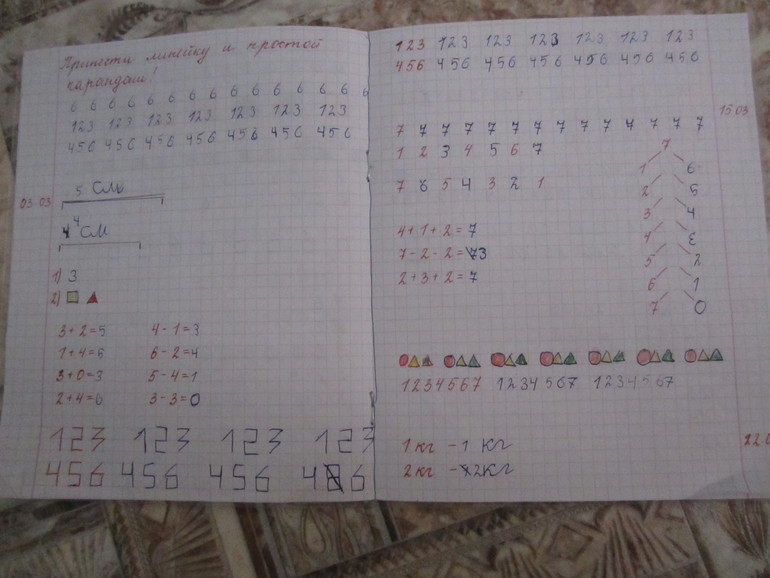 Принести линейку и простой
карандаш!
6 6 6 6 6 6 6 6 6 6 6 6 6 6 6
123 123 123 123 123 123 123
456 456 456 456 456 456 456
03.03
5 см
4 см
1) 3
2)
3+2=5 4-1=3
1+4=5 6-2=4
3+0=3 5-4=1
2+4=6 3-3=0
123 123 123 123
456 456 456 4 6
123 123 123 123 123 123 123
456 456 456 456 456 456 456
15.03
7 7 7 7 7 7 7 7 7 7 7 7 7 7
1 2 3 4 5 6 7
7 6 5 4 3 2 1
4+1+2=7
7-2-2=3
2+3+2=7
7
1 6
2 5
3 4
4 3
5 2
6 1
7 0
1234567 1234567 1234567
1 кг - 1 кг
2 кг - 2 кг